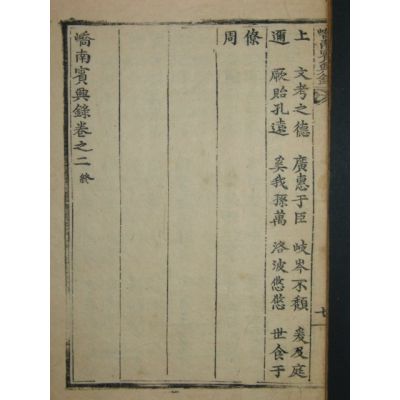 嶠南賓興錄
七
上 文考之德 廣惠于臣 岐岑不頹 爰及庭
邇 厥貽孔遠 奚我孫萬 洛波悠悠 世食于
條
周
嶠南賓興錄卷之二 終